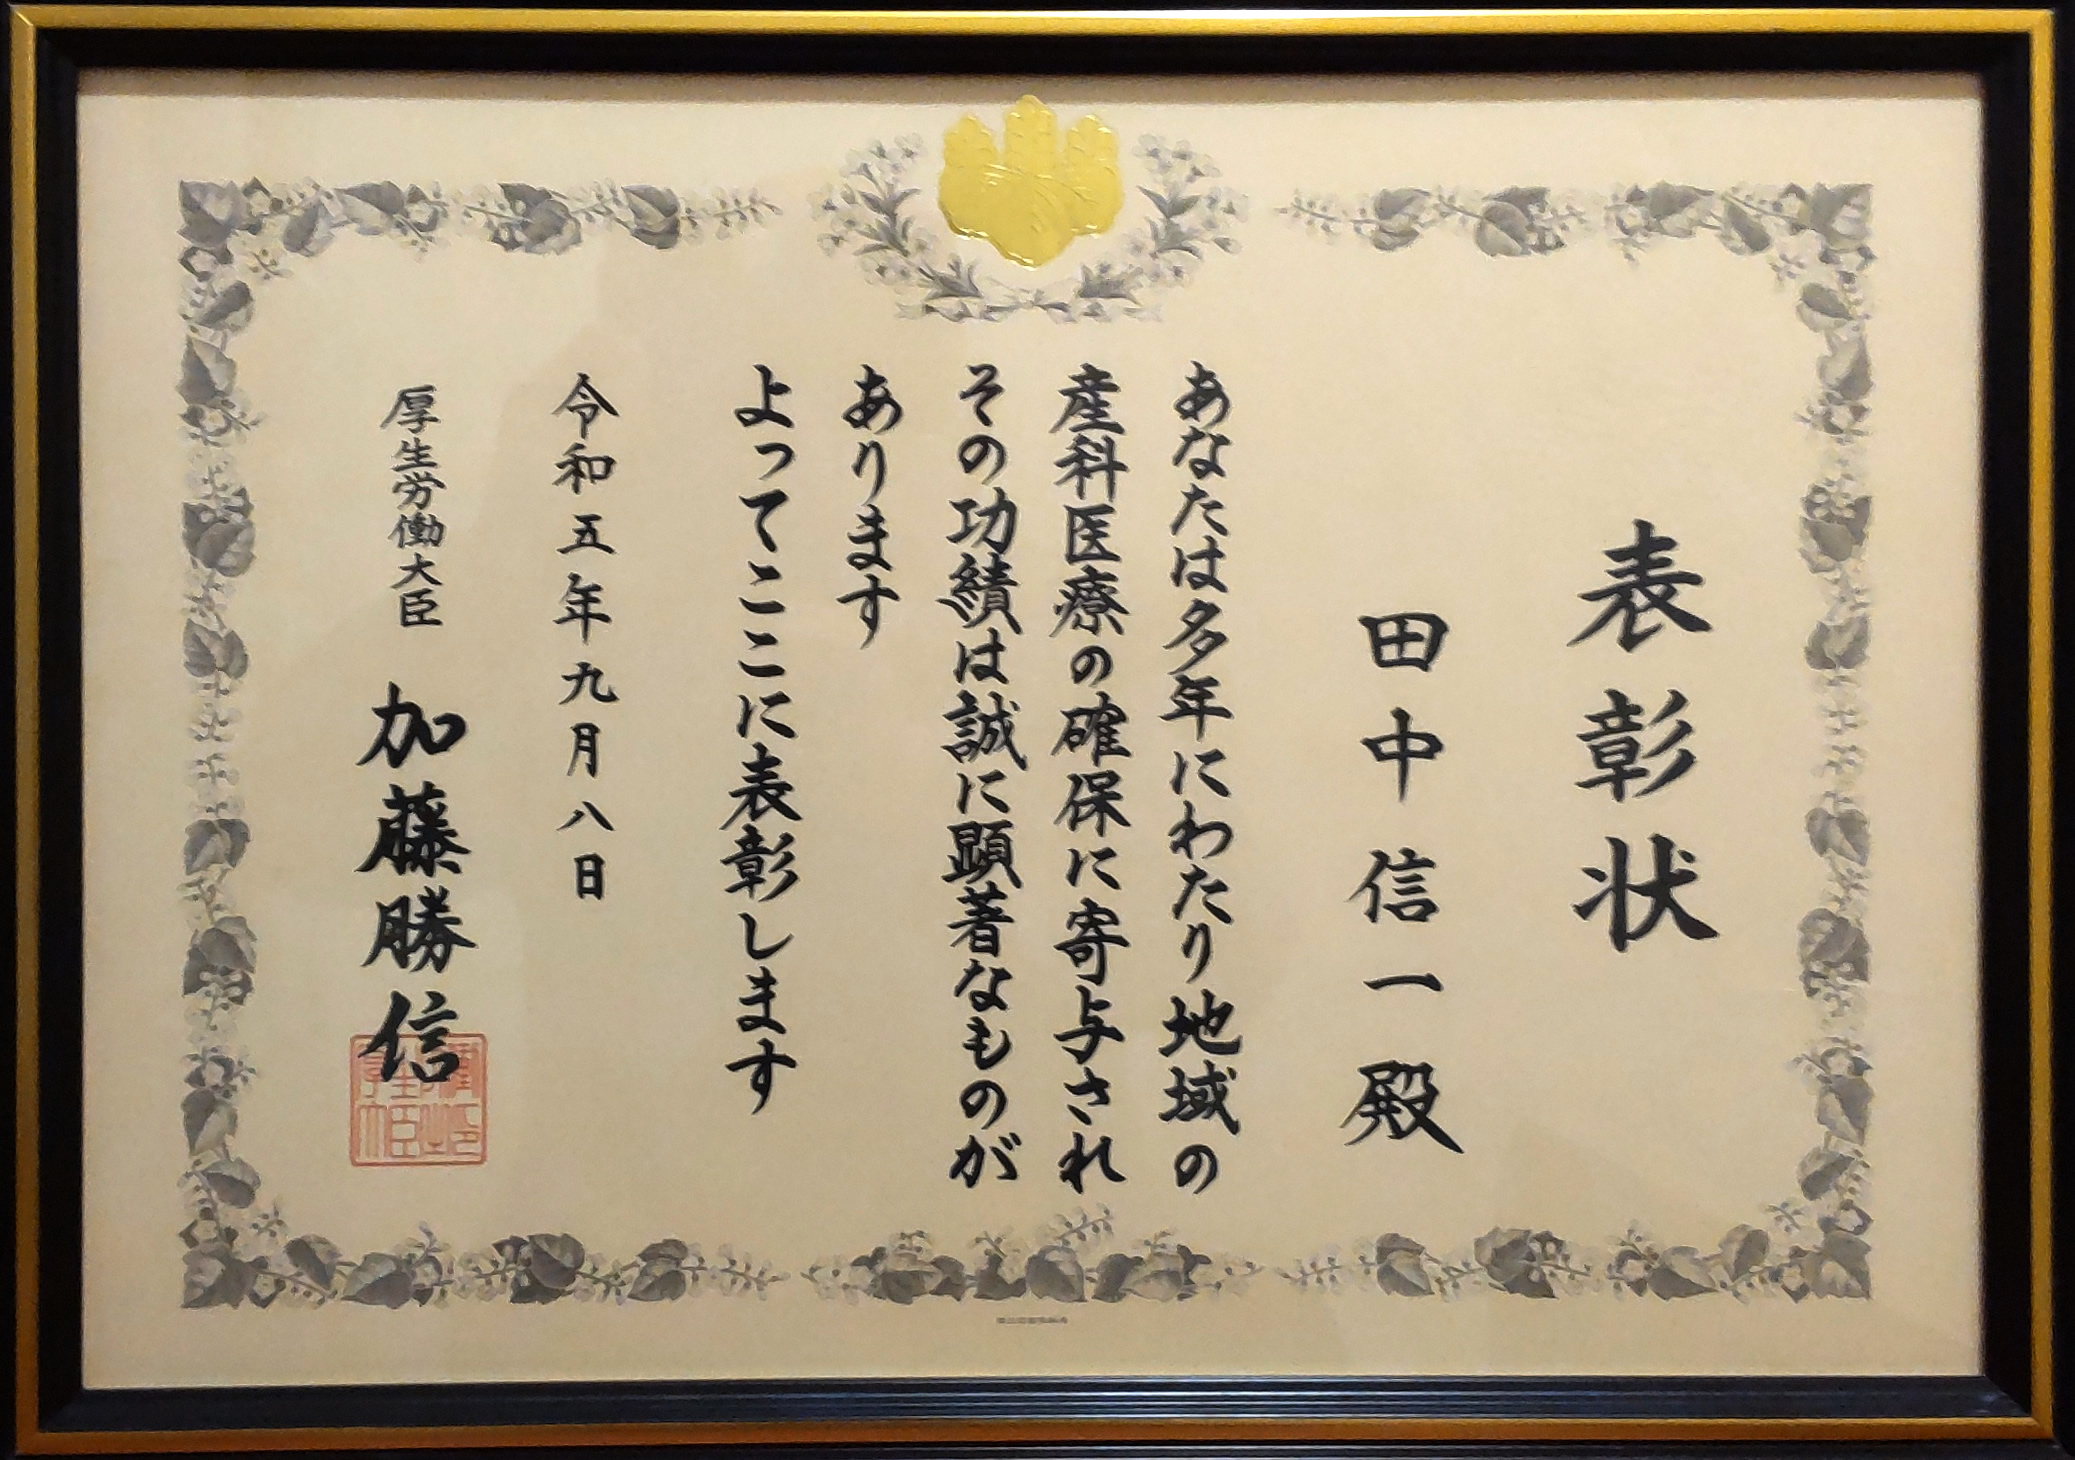 表彰状
田中信一殿
あなたは多年にわたり地域の
産科医療の確保に寄与され
その功績は誠に顕著なものが
あります
よってここに表彰します
令和五年九月八日
厚生労働大臣 加藤勝信